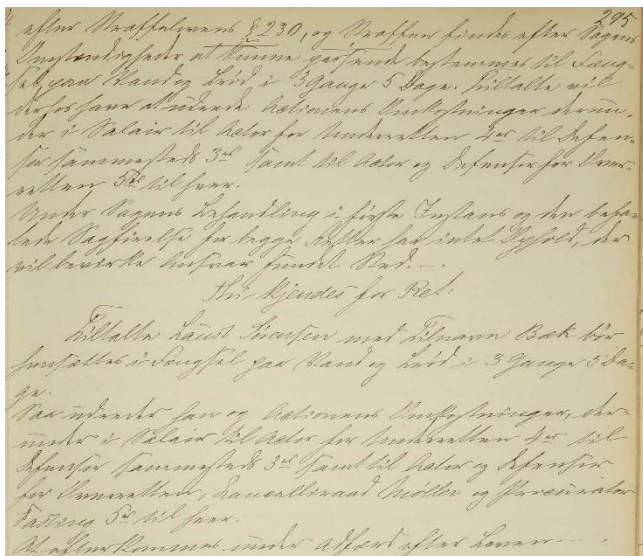 295
efter Straffelovens § 230, og Straffen findes efter Sagens
Omstændigheder at kunne passende bestemmes til Fæng-
sel paa Vand og Brød i 3 Gange 5 Dage. Tiltalte vil
derhos have at udrede Actionens Omkostninger, derun-
der i Salair til Actor for Underretten 4 rd til Defen-
sor sammesteds 3 rd samt til Actor og Defensor for Over-
retten 5 rd til hver.
Under Sagens Behandling i første Instans og den befa-
lede Sagførelse for begge Retter har intet Ophold, der
vil bevirke Ansvar fundet Sted. —
Thi kjendes for Ret:
Tiltalte Laust Sørensen med Tilnavn Bæk bør
hensættes i Fængsel paa Vand og Brød i 3 Gange 5 Da-
ge.
Saa udreder han og Actionens Omkostninger, der-
under i Salair til Actor for Underretten 4 rd til
Defensor sammesteds 3 rd samt til Actor og Defensor
for Overretten, Cancelliraad Møller og Procurator
Fasting 5 rd til hver.
At efterkommes under Adfærd efter Loven. —